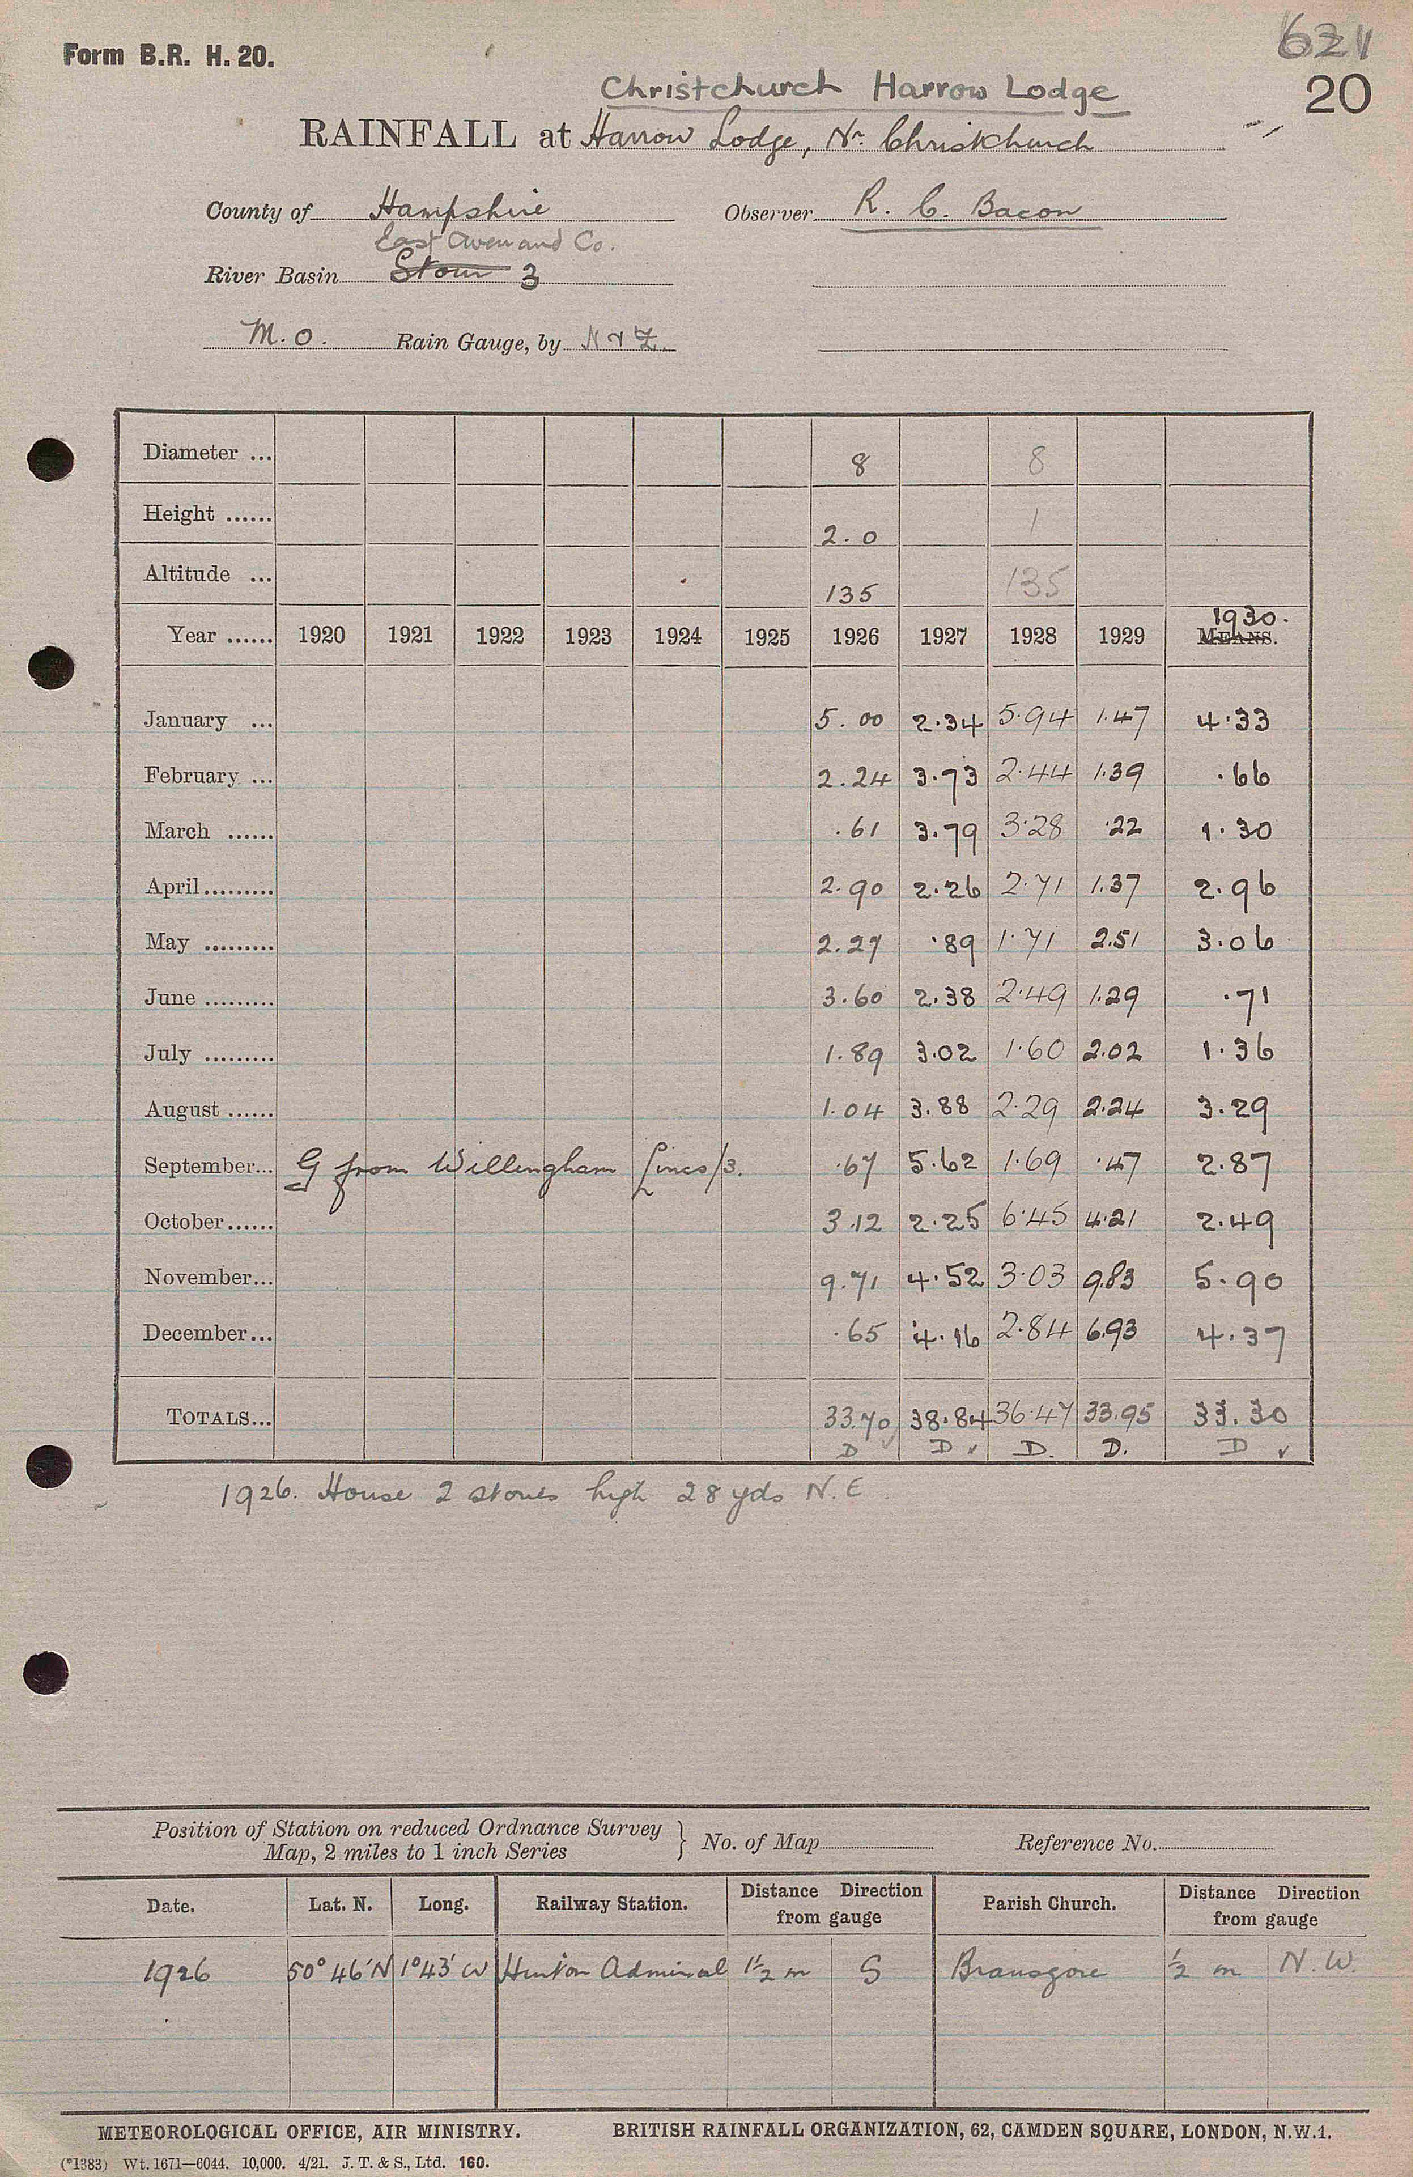 Form B.R. H. 20.
621
20
Christchurch Harrow Lodge
RAINFALL at Harrow Lodge, Nr. Christchurch
County of Hampshire Observer R. C. Bacon
East Avon and Co.
River Basin Stour 3
M.O. Rain Gauge, by N & Z
Diameter ... 8 8
Height ...... 2.0 1
Altitude ... 135 135
1930.
Year ...... 1920 1921 1922 1923 1924 1925 1926 1927 1928 1929 MEANS.
January ... 5.00 2.34 5.94 1.47 4.33
February ... 2.24 3.73 2.44 1.39 .66
March ...... .61 3.79 3.28 .22 1.30
April ......... 2.90 2.26 2.71 1.37 2.96
May ......... 2.27 .89 1.71 2.51 3.06
June ......... 3.60 2.38 2.49 1.29 .71
July ......... 1.89 3.02 1.60 2.02 1.36
August ...... 1.04 3.88 2.29 2.24 3.29
September... G from Willingham Lincs/3. .67 5.62 1.69 .47 2.87
October...... 3.12 2.25 6.45 4.21 2.49
November... 9.71 4.52 3.03 9.83 5.90
December... .65 4.16 2.84 6.93 4.37
TOTALS... 33.70 38.84 36.47 33.95 33.30
D D D. D. D
1926. House 2 stories high 28 yds N.E
Position of Station on reduced Ordnance Survey
Map, 2 miles to 1 inch Series } No. of Map Reference No.
Date. Lat. N. Long. Railway Station. Distance Direction from gauge Parish Church. Distance Direction from gauge
1926 50° 46' N 1° 43' W Hinton Admiral 1½ m S Bransgore ½ m N.W.
METEOROLOGICAL OFFICE, AIR MINISTRY. BRITISH RAINFALL ORGANIZATION, 62, CAMDEN SQUARE, LONDON, N.W.1.
(*1383) Wt. 1671—6044. 10,000. 4/21. J. T. & S., Ltd. 160.